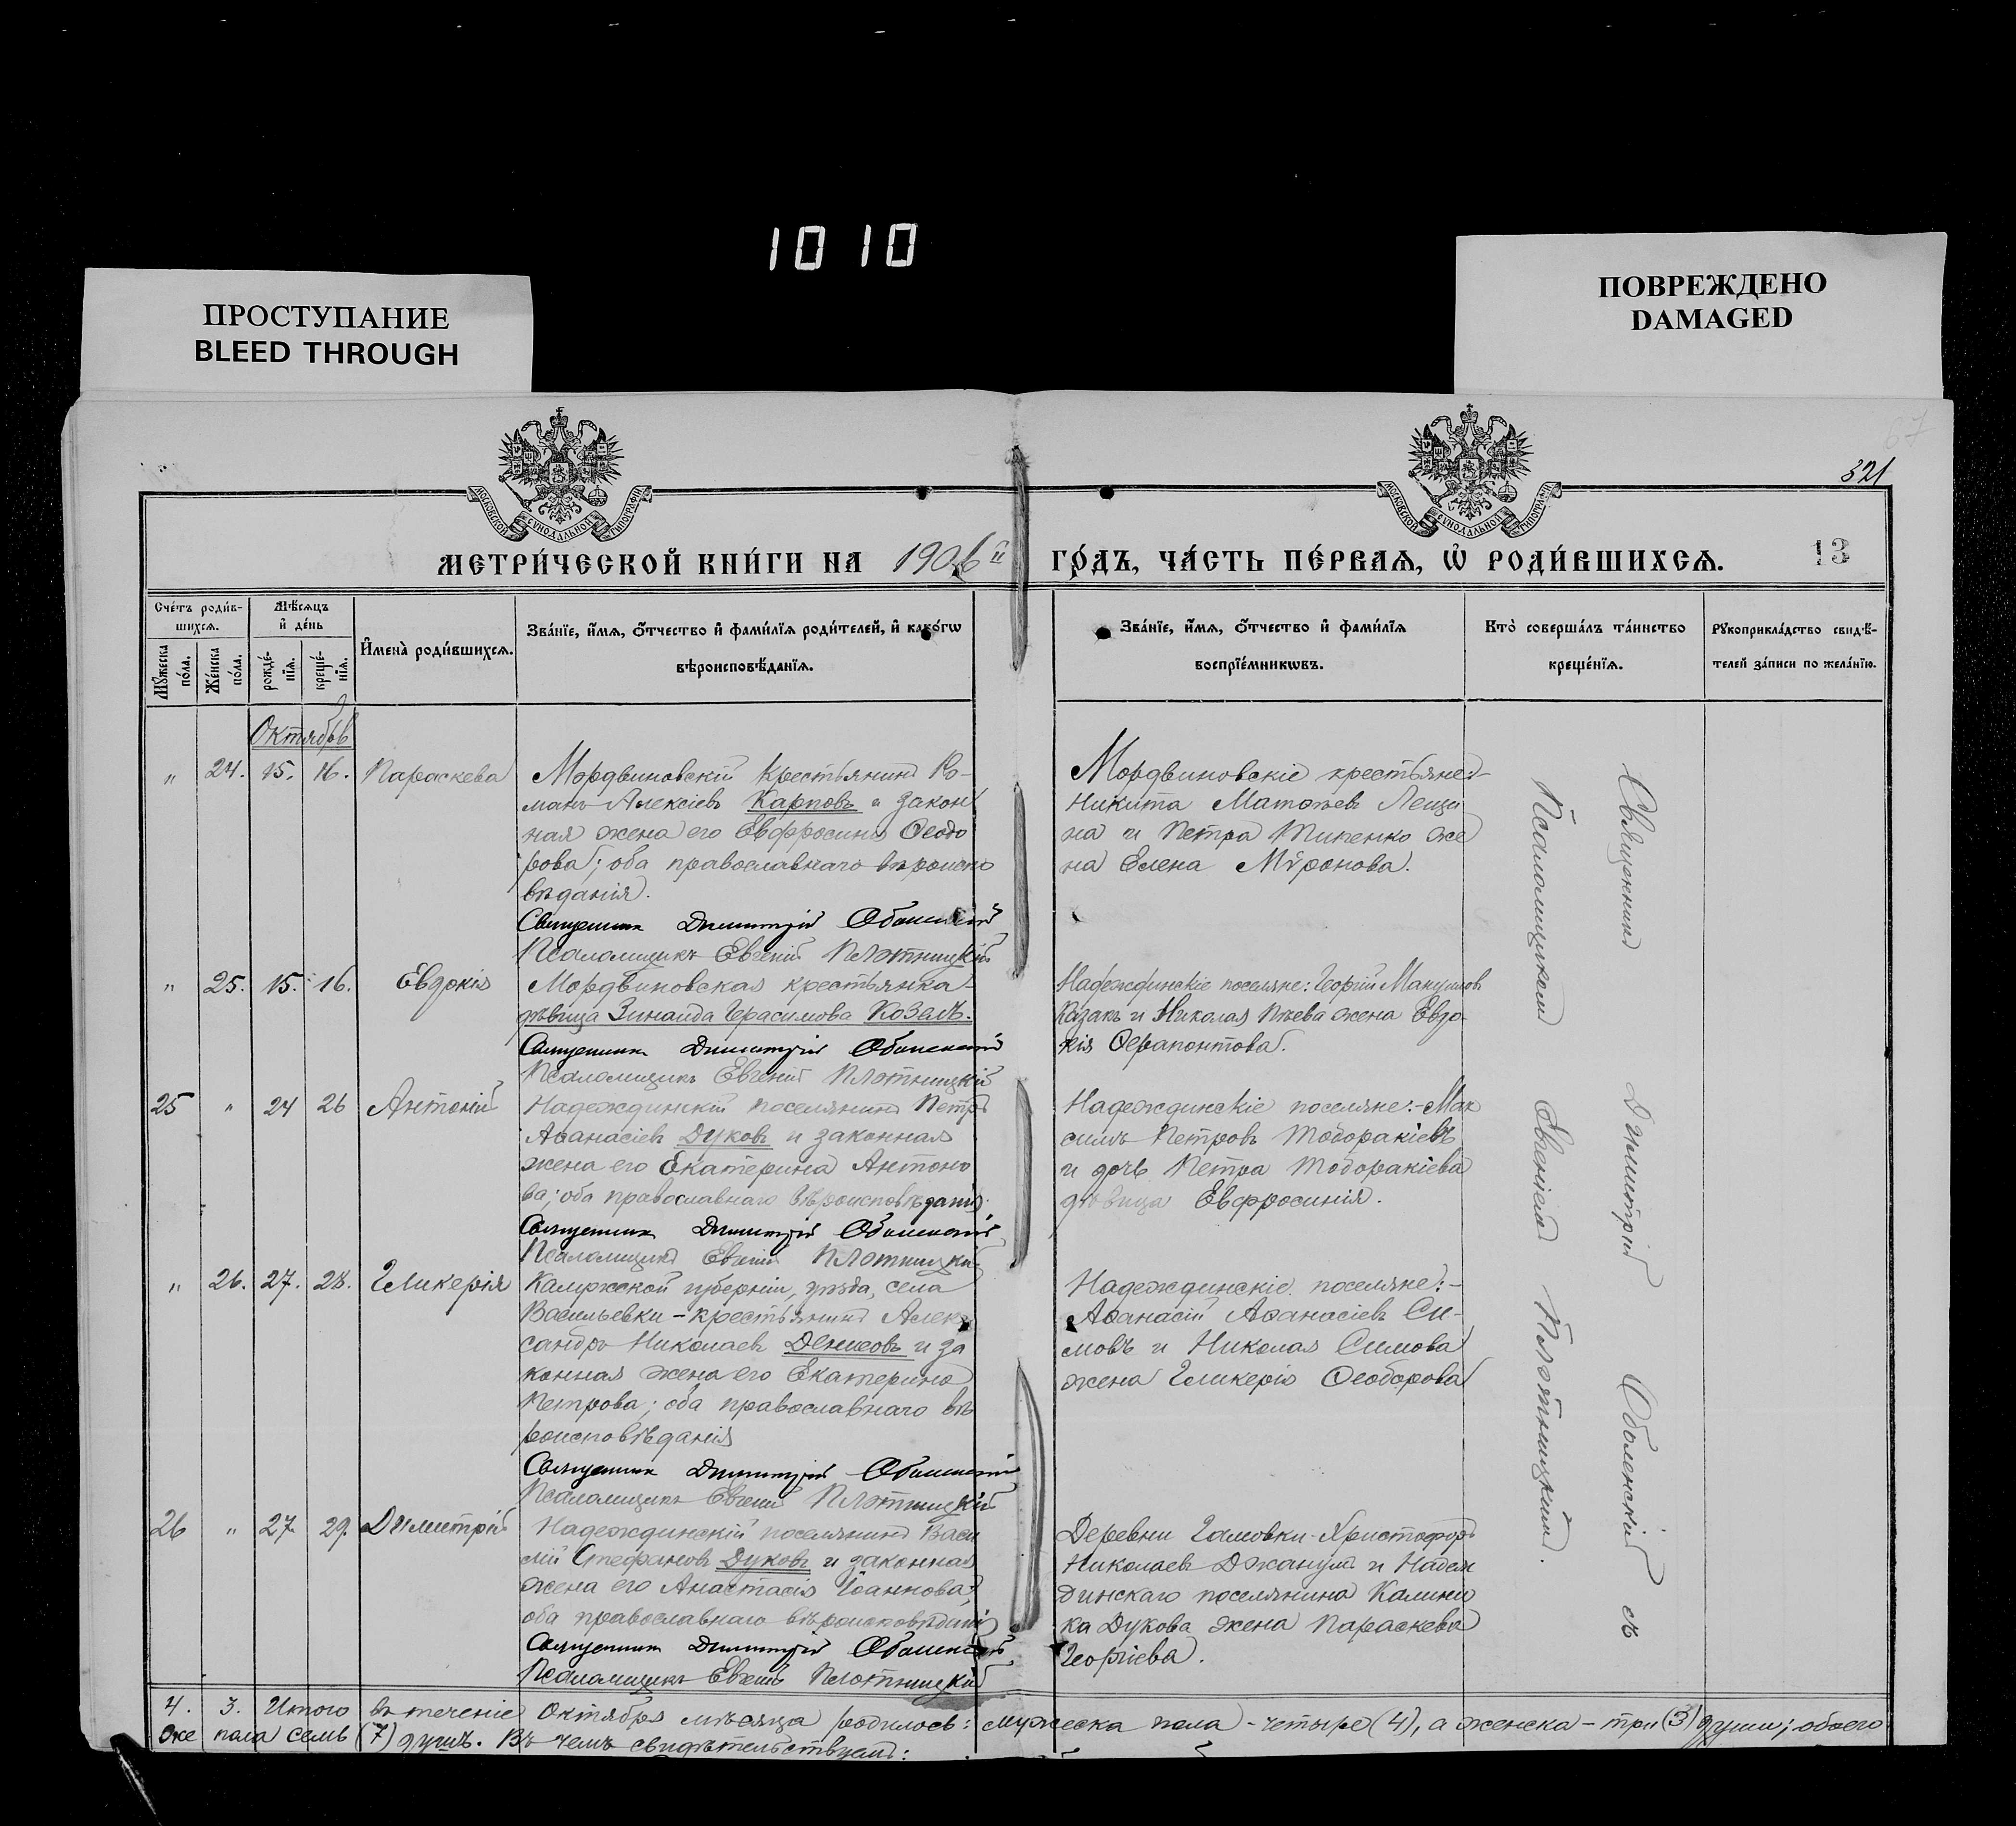 1010
ПРОСТУПАНИЕ
BLEED THROUGH
ПОВРЕЖДЕНО
DAMAGED
67
321
МОСКОВСКОЙ СѴНОДАЛЬНОЙ ТИПОГРАФІИ
МОСКОВСКОЙ СѴНОДАЛЬНОЙ ТИПОГРАФІИ
МЕТРИ́ЧЕСКОЙ КНИ́ГИ НА 1906й ГО́ДЪ, ЧА́СТЬ ПЕ́РВАѦ, Ѡ҆ РОДИ́ВШИХСѦ.
13
Сче́тъ роди́в-
шихсѧ.
Мѣ́сѧцъ
и҆ де́нь
Мꙋ́жеска по́ла.
Же́нска по́ла.
рожде́-
нїѧ.
креще́-
нїѧ.
И҆мена̀ роди́вшихсѧ.
Зва́нїе, и҆́мѧ, ѻ҆́тчество и҆ фами́лїѧ роди́телей, и҆ како́гѡ
вѣроисповѣ́данїѧ.
Зва́нїе, и҆́мѧ, ѻ҆́тчество и҆ фами́лїѧ
воспрїе́мникѡвъ.
Кто̀ соверша́лъ та́инство
креще́нїѧ.
Рꙋкоприкла́дство свидѣ́-
телей за́писи по жела́нїю.
Октябрь
" 24. 15. 16. Параскева
Мордвиновскій крестьянинъ Ро-
манъ Алексіевъ Карповъ и закон
ная жена его Евфросинія Ѳеодо
рова; оба православнаго вѣроиспо
вѣданія.
Священникъ Димитрій Оболенскій
Псаломщикъ Евгеній Плотницкій
Мордвиновскіе крестьяне:-
Никита Матѳіевъ Лещи
на и Петра Типенко же
на Елена Мѵронова.
" 25. 15. 16. Евдокія
Мордвиновская крестьянка-
дѣвица Зинаида Герасимова Коваль.
Священникъ Димитрій Оболенскій
Псаломщикъ Евгеній Плотницкій
Надеждинскіе поселяне: Георгій
Казакъ и Николая жена Евдо-
кія Ѳерапонтова.
25 " 24 26 Антоній
Надеждинскій поселянинъ Петръ
Аѳанасіевъ Дуковъ и законная
жена его Екатерина Антоно
ва; оба православнаго вѣроисповѣданія.
Священникъ Димитрій Оболенскій
Псаломщикъ Евгеній Плотницкій
Надеждинскіе поселяне:- Мак
симъ Петровъ Тодоракіевъ
и дочь Петра Тодоракіева
дѣвица Евфросинія.
" 26. 27. 28. Гликерія
Калужской губерніи, уѣзда, села
Васильевки - крестьянинъ Алек
сандръ Николаевъ Денисовъ и за
конная жена его Екатерина
Петрова; оба православнаго вѣ
роисповѣданія
Священникъ Димитрій Оболенскій
Псаломщикъ Евгеній Плотницкій
Надеждинскіе поселяне:-
Аѳанасій Аѳанасіевъ Си-
мовъ и Николая Симова
жена Гликерія Ѳеодорова
26 " 27. 29. Димитрій
Надеждинскій поселянинъ Васи
лій Стефановъ Дуковъ и законная
жена его Анастасія Іоаннова;
оба православнаго вѣроисповѣданія
Священникъ Димитрій Оболенскій
Псаломщикъ Евгеній Плотницкій
Деревни Гамовки Христофоръ
Николаевъ Джанумъ и Надеж
динскаго поселянина Калини
ка Дукова жена Параскева
Георгіева.
Священникъ Димитрій Оболенскій съ
Псаломщикомъ Евгеніемъ Плотницкимъ.
4. 3. Итого въ теченіе Октября мѣсяца родилось: мужеска пола - четыре (4), а женска - три (3) души; обоего
же пола семь (7) душъ. Въ чемъ свидѣтельствуемъ: